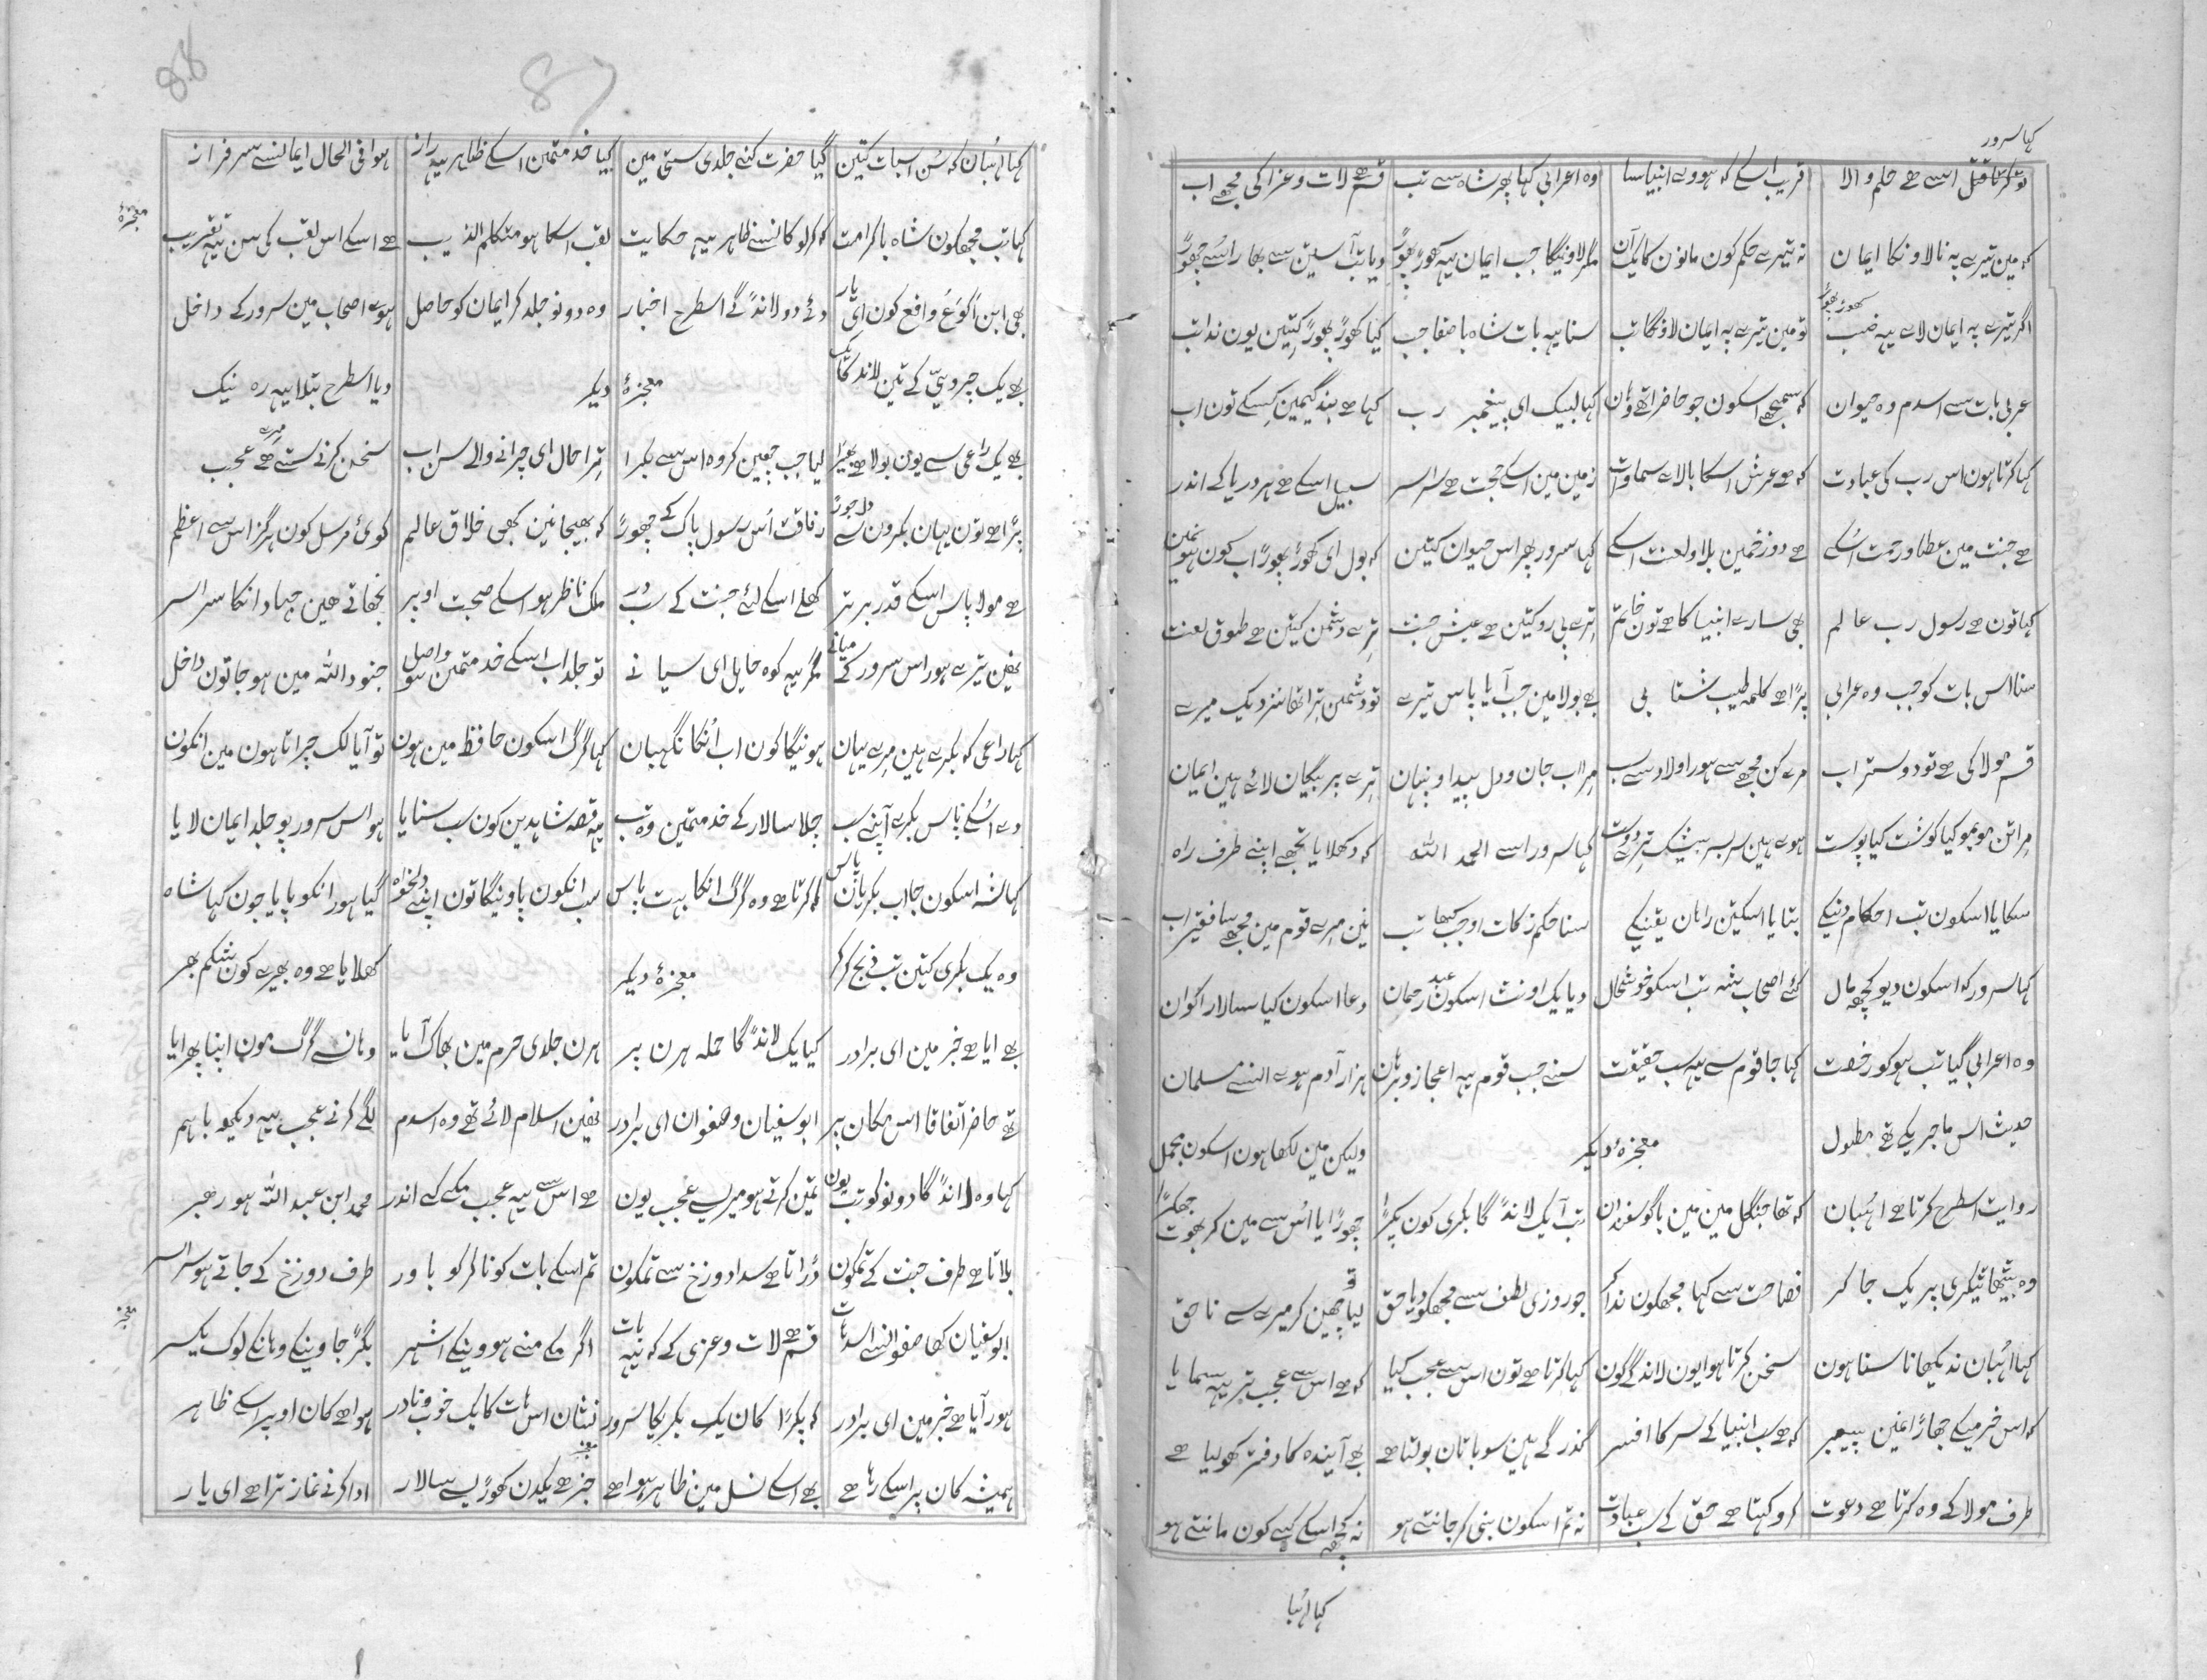 کہا سرور
تو کرتا قتل اسے ہے حلم والا قریب اسکے کہ ہووے انبیا سا وہ اعرابی کہا پھر شاہ سے تب قسم ہے لات و عزا کی مجھے اب
کہ مین تیرے پہ نا لاونکا ایمان نہ تیرے حکم کون مانون کا یک آن مگر لاونیگا جب ایمان یہ کھوڑپھوڑ دیا تب آستین سے بھار اسے چھوڑ
اگر تیرے پہ ایمان لاے یہ ضب کھوڑپھوڑ تو مین تیرے پہ ایمان لاونگا تب سنا یہ بات شاہ باصفا جب کیا کھوڑپھوڑ کیتین یون ندا تب
عربی بات سے اسدم وہ حیوان کہ سمجھے اسکون جو حاضر اتھے وہان کہا لبیک ای پیغمبر رب کہا ہے بندگیمین کسکے تون اب
کہا کرتا ہون اس رب کی عبادت کہ ہے عرش اسکا بالاے سماوات زمین مین اسکے حجت ہے سراسر سبیل اسکے ہے ہر دریا کے اندر
ہے جنت مین عطا و رحمت اسکے ہے دوزخمین بلا و لعنت اسکے کہا سرور پھر اس حیوان کیتین کہ بول ای کھوڑپھوڑ اب کون ہو نمین
کہا تون ہے رسول رب عالم بھی سارے انبیا کا ہے تون خاتم ترے پی رو کیتین ہے عیش جنت ترے دشمن کیتین ہے طوق لعنت
سنا اس بات کو جب وہ عرابی پڑا ہے کلمہ طیب شتابی بے بولا مین جب آیا پاس تیرے تو دشمن ترا تھا نزدیک میرے
قسم مولا کی ہے تو دوستر اب مرے کن مجھ سے ہور اولاد سے سب مرا اب جان و دل پیدا و پنہان ترے پر بیگمان لاے ہین ایمان
مرا تن مو بمو کیا گوشت کیا پوست ہوے ہین سر بسر بیشک ترے دوست کہا سرور اسے الحمد اللہ کہ دکھلایا تجھے اپنے طرف راہ
سکایا اسکون تب احکام دینکے بتایا اسکتین راہان یقینکے سنا حکم زکات او جبکھا تب نین مرے قوم مین مجھ سا فقیر اب
کہا سرور کہ اسکون دیو کچھ مال کئے اصحاب شہ تب اسکو خوشحال دیا یک اونٹ اسکون عبد رحمان دعا اسکون کیا سالار اکوان
وہ اعرابی گیا تب ہو کو رخصت کہا جا قوم سے یہ سب حقیقت سنے جب قوم یہ اعجاز و برہان ہزار آدم ہوے النسے مسلمان
حدیث اس ماجریکے تھے مطول معجزۂ دیگر ولیکن مین لکھا ہون اسکون مجمل
روایت اسطرح کرتا ہے اہبان کہ تھا جنگل مین مین با گوسفندان تب آیک لانڈگا بکری کون پکڑا چھوڑایا اس سے مین کر بھوت جھکڑا
وہ بیٹھا ٹیکری پر یک جا کر فصاحت سے کہا مجھکون ندا کر جو روزی لطف سے مجھکو دیا حق لیا تو چھین کر میرے سے ناحق
کہا اہبان ندیکھا نا سنا ہون سخن کرتا ہوا یون لاندگے کون کہا کرتا ہے تون اس سے عجب کیا کہ ہے اس سے عجب تر یہ سما یا
کہ اس خرمیکے جھاڑا نمین پیمبر کہ ہے سب انبیا کے سر کا افسر گذر گے ہین سو باتان بولتا ہے بے آیندہ کا دفتر کھولیا ہے
طرف مولا کے وہ کرتا ہے دعوت کرو کہتا ہے حق کے سب عبادت نہ تم اسکون نبی کر جانتے ہو نہ کچھ اسکے کہے کون مانتے ہو
کہا اہبا
88
87
کہا اہبان کہ سن اسبات کیتین گیا حضرت کنے جلدی ستی مین کیا خدمتمین اسکے ظاہر یہ راز ہوا فی الحال ایمانسے سرفراز
کہا تب مجھکون شاہ با کرامت کہ کر لوکانسے ظاہر یہ حکایت لقب اسکا ہو متکلم الذیب ہے اسکے اس لقب کی سن یہ تقریب معجزہ
بھی ابن اکوع و رافع کون ای یار دئے دو لانڈگے اسطرح اخبار وہ دونو جلد کر ایمان کو حاصل ہوے اصحاب مین سرور کے داخل
بے یک جردینی کے تین لاندکا یک معجزۂ دیگر دیا اسطرح بتلا یہ رہ نیک
بے یک راعی سے یون بولا ہے بھیڑا لیا جب چھین کر وہ اس سے بکرا ترا حال ای چرانے والے سن اب سخن کرنے ستے میرے ہے عجب
پڑا ہے تون یہان بکرون سے دل جوڑ رفاقت اس رسول پاک کے چھوڑ کہ بھیجا نین کبھی خلاق عالم کوئی مرسل کون ہرگز اس سے اعظم
ہے مولا پاس اسکے قدر برتر کھلے اسکے لئے جنت کے سب در ملک ناظر ہو اسکے صحبت اوپر نجھاتے ھین جہاد انکا سراسر
نھین تیرے ہور اس سرور کے میانے مگر یہ کوہ حایل ای سیانے تو جلد اب اسکے خدمتمین ہو واصل جنود اللہ مین ہو جا تون داخل
کہا راعی کہ بکرے ہین مرے یہان ہونیگا کون اب انکا نگہبان کہا گرگ اسکون حافظ مین ہون تو آیا لک چراتا ہون مین انکون
دے اسکے پاس بکرے اپنے سب چلا سالار کے خدمتمین وہ تب یہ قصہ شاہدین کون سب سنایا ہو اس سرور پو جلد ایمان لایا
کہا شہ اسکون جا اب بکریان پاس کہ کرتا ہے وہ گرگ انکا بہت پاس سب انکون پاونیگا تون اپنے دلخواہ گیا ہور انکو پایا جون کہا شاہ
وہ یک بکری کیتین تب ذبح کر کر معجزۂ دیگر کھلایا ہے وہ بھیرے کون شکم بھر
بے ایا ہے خبر مین ای برادر کیا یک لانڈگا حملہ ہرن پر ہرن جلدی حرم مین بھاک آیا وہان سے گرگ مون اپنا پھرایا
تھے حاضر اتفاقا اس مکان پر ابوسفیان و صفوان ای برادر نھین اسلام لائے تھے وہ اسدم لگے کرنے عجب یہ دیکھو باہم
کہا وہ لانڈگا دونو کو تب یون تمین کرتے ہو میرے عجب یون ہے اس سے یہ عجب مکے کے اندر محمد ابن عبد اللہ ہو رہبر
بلاتا ہے طرف جنت کے تمکون ڈراتا ہے سدا دوزخ سے تمکون تم اسکے بات کو نا کر کو باور طرف دوزخ کے جاتے ہو سراسر
ابوسفیان کھا صفوانسے اسدہات قسم ہے لات و عزی کے کہ یہ بات اگر مکے منے ہووینگے اشہر بگڑ جاوینکے وہانکے لوک یکسر معجزہ
ہور آیا ہے خبر مین ای برادر کہ پکڑا کان یک بکریکا سرور نشان اس ہات کا یک خوب و نادر ہوا ہے کان اوپر اسکے ظاہر
ہمیشہ کان پر اسکے رہا ہے بے اسکے نسل مین ظاہر ہوا ہے خبر ہے یکدن کھوڑیسے سالار ادا کرنے نماز ترا ہے ای یار